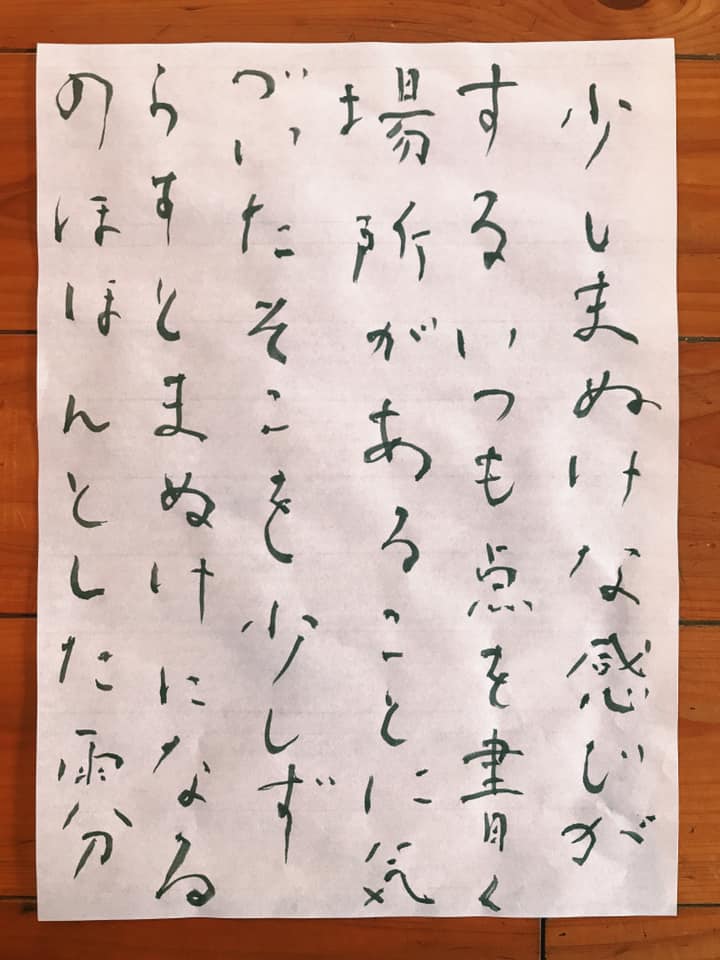 少しまぬけな感じが
するいつも点を書く
場所があることに気
づいたそこを少しず
らすとまぬけになる
のほほんとした雰